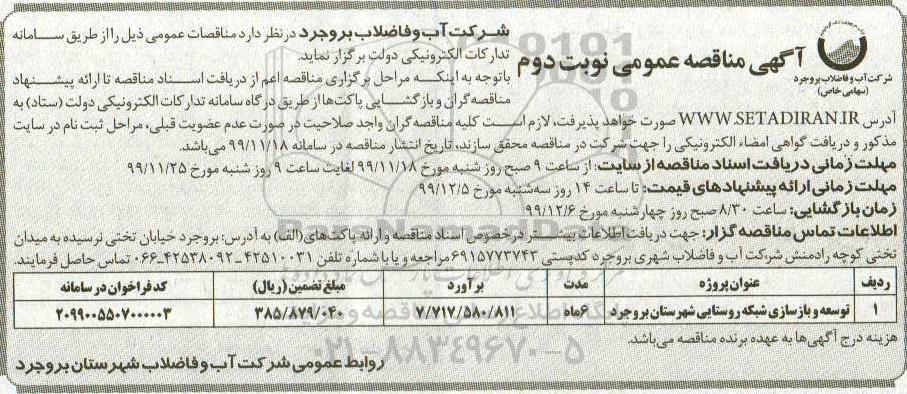 شرکت آب و فاضلاب بروجرد
(سهامی خاص)
آگهی مناقصه عمومی نوبت دوم
شرکت آب و فاضلاب بروجرد در نظر دارد مناقصات عمومی ذیل را از طریق سامانه
تدارکات الکترونیکی دولت برگزار نماید.
با توجه به اینکه مراحل برگزاری مناقصه اعم از دریافت اسناد مناقصه تا ارائه پیشنهاد
مناقصه گران و بازگشایی پاکت‌ها از طریق درگاه سامانه تدارکات الکترونیکی دولت (ستاد) به
آدرس WWW.SETADIRAN.IR صورت خواهد پذیرفت، لازم است کلیه مناقصه گران واجد صلاحیت در صورت عدم عضویت قبلی، مراحل ثبت نام در سایت
مذکور و دریافت گواهی امضاء الکترونیکی را جهت شرکت در مناقصه محقق سازند، تاریخ انتشار مناقصه در سامانه ۹۹/۱۱/۱۸ می‌باشد.
مهلت زمانی دریافت اسناد مناقصه از سایت: از ساعت ۹ صبح روز شنبه مورخ ۹۹/۱۱/۱۸ لغایت ساعت ۹ روز شنبه مورخ ۹۹/۱۱/۲۵
مهلت زمانی ارائه پیشنهادهای قیمت: تا ساعت ۱۴ روز سه‌شنبه مورخ ۹۹/۱۲/۵
زمان بازگشایی: ساعت ۸/۳۰ صبح روز چهارشنبه مورخ ۹۹/۱۲/۶
اطلاعات تماس مناقصه گزار: جهت دریافت اطلاعات بیشتر در خصوص اسناد مناقصه و ارائه پاکت‌های (الف) به آدرس: بروجرد خیابان تختی نرسیده به میدان
تختی کوچه رادمنش شرکت آب و فاضلاب شهری بروجرد کدپستی ۶۹۱۵۷۷۳۷۴۳ مراجعه و یا با شماره تلفن ۴۲۵۱۰۰۳۱-۴۲۵۳۸۰۹۲-۰۶۶ تماس حاصل فرمایند.
ردیف عنوان پروژه مدت برآورد مبلغ تضمین (ریال) کد فراخوان در سامانه
۱ توسعه و بازسازی شبکه روستایی شهرستان بروجرد ۶ماه ۷/۷۱۷/۵۸۰/۸۱۱ ۳۸۵/۸۷۹/۰۴۰ ۲۰۹۹۰۰۵۵۰۷۰۰۰۰۰۳
هزینه درج آگهی‌ها به عهده برنده مناقصه می‌باشد.
روابط عمومی شرکت آب و فاضلاب شهرستان بروجرد
۰۲۱-۸۸۳۴۹۶۷۰-۵